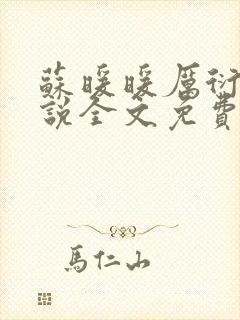 蘇暖暖厲衍
說全文免費
馬仁山